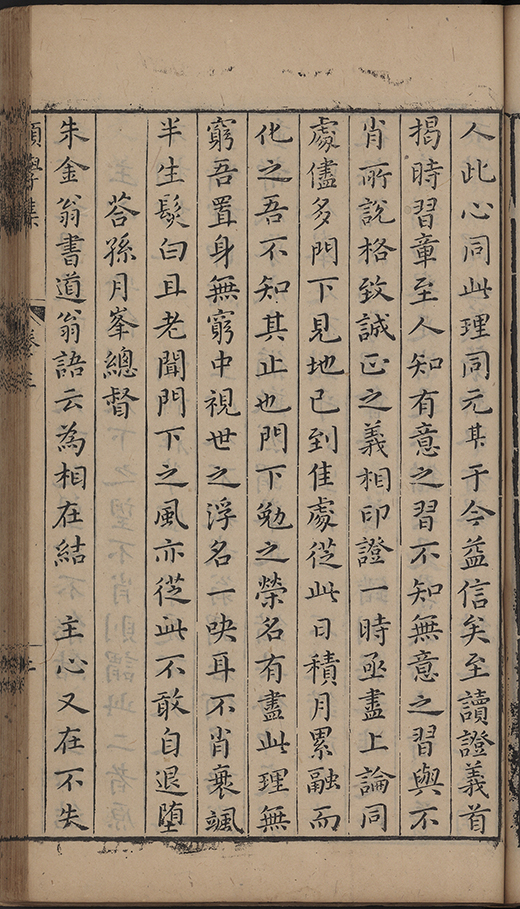 人此心同此理同元其于今益信矣至讀證義首
揭時習章至人知有意之習不知無意之習與不
肖所說格致誠正之義相印證一時亟盡上論同
處儘多門下見地已到佳處從此日積月累融而
化之吾不知其止也門下勉之榮名有盡此理無
窮吾置身無窮中視世之浮名一吷耳不肖衰颯
半生髮白且老聞門下之風亦從此不敢自退墮
答孫月峯總督
朱金翁書道翁語云為相在結 主心又在不失
願學集
卷三